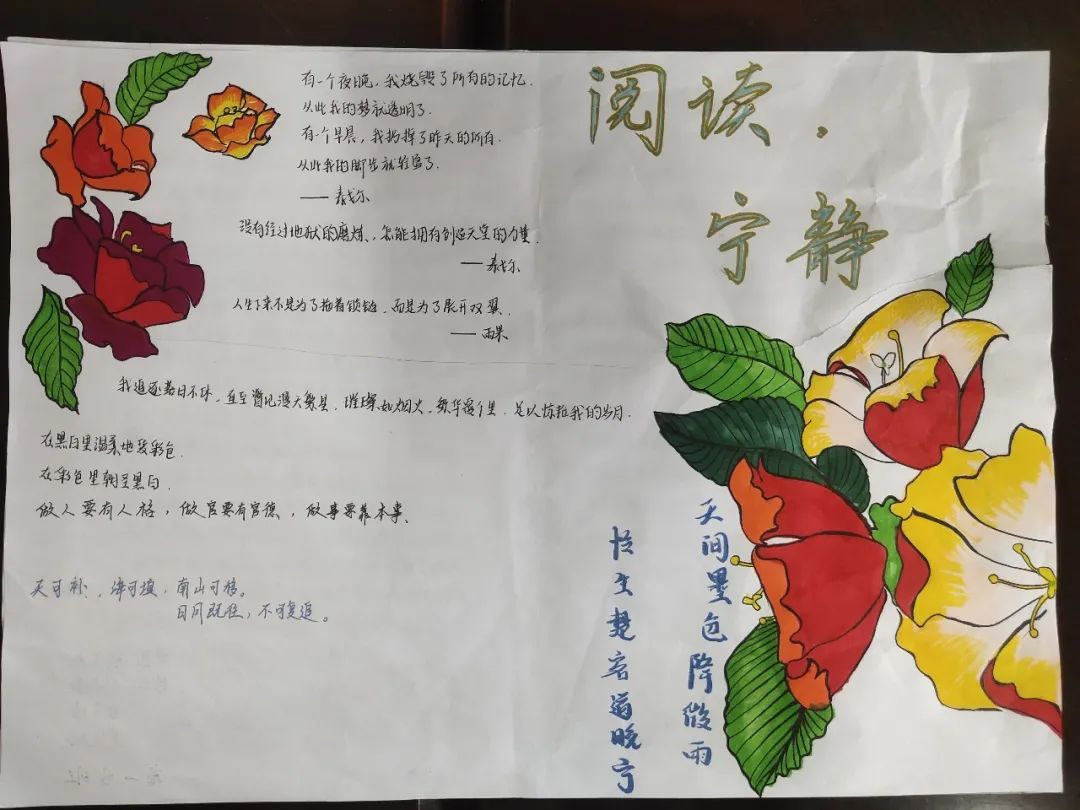 阅读.
宁静
有一个夜晚，我烧毁了所有的记忆.
从此我的梦就透明了.
有一个早晨，我扔掉了昨天的所有.
从此我的脚步就轻盈了.
——泰戈尔
没有经过地狱的磨炼、怎能拥有创造天堂的力量.
——泰戈尔
人生下来不是为了拖着锁链，而是为了展开双翼.
——雨果
我追逐 日不休，直至瞥见漫天繁星，璀璨如烟火，繁华 里，足以惊艳我的岁月.
在黑白里温柔地爱彩色
在彩色里朝圣黑白.
做人要有人格，做官要有官德，做事要靠本事、
天可补，海可填，南山可移。
日月既往，不可复追。
天间墨色降微雨
生楚 晚宁